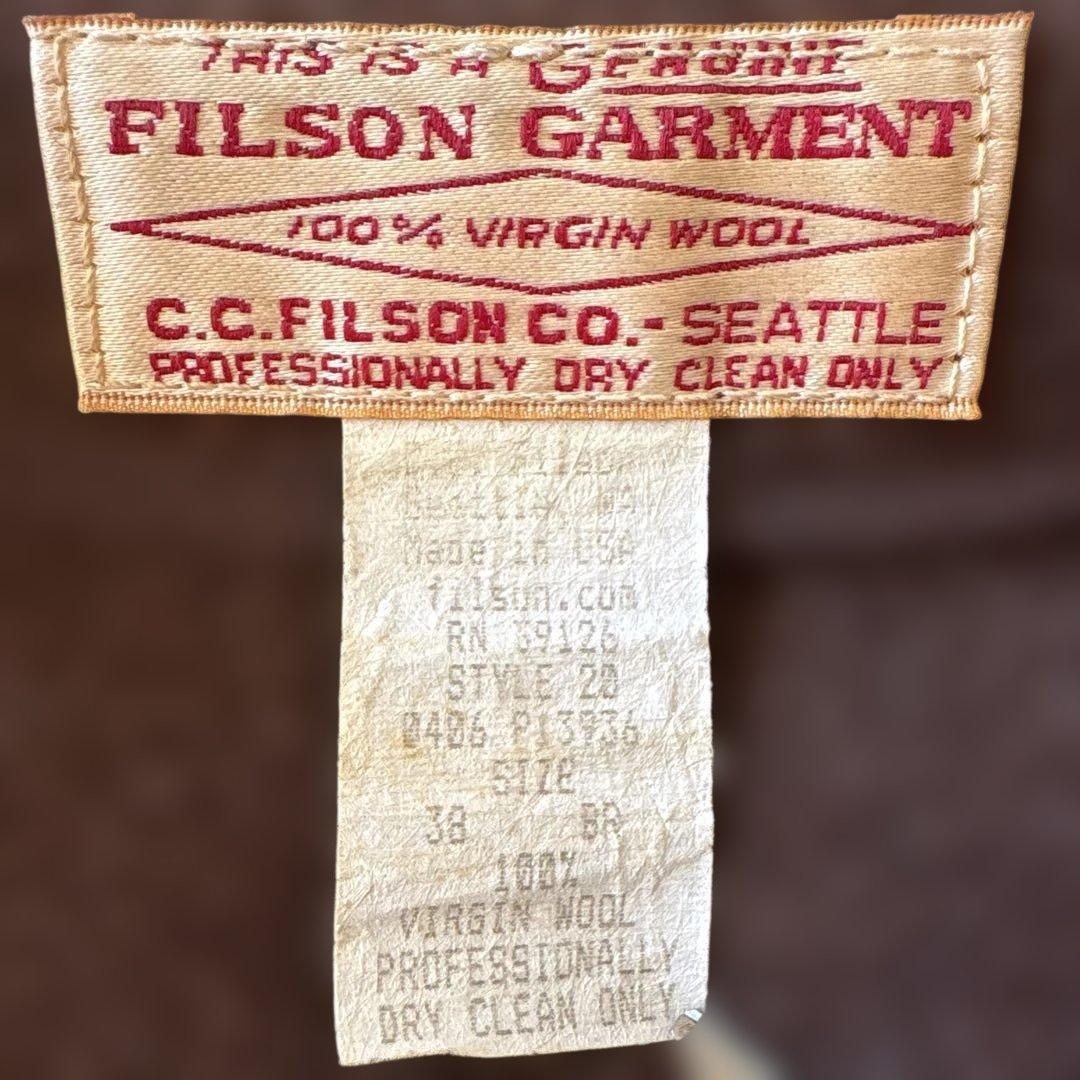 THIS IS A GENUINE
FILSON GARMENT
100% VIRGIN WOOL
C.C.FILSON CO.- SEATTLE
PROFESSIONALLY DRY CLEAN ONLY
Seattle, WA
Made in USA
filson.com
RN 39126
STYLE 20
0406 P13936
SIZE
38 BR
100%
VIRGIN WOOL
PROFESSIONALLY
DRY CLEAN ONLY